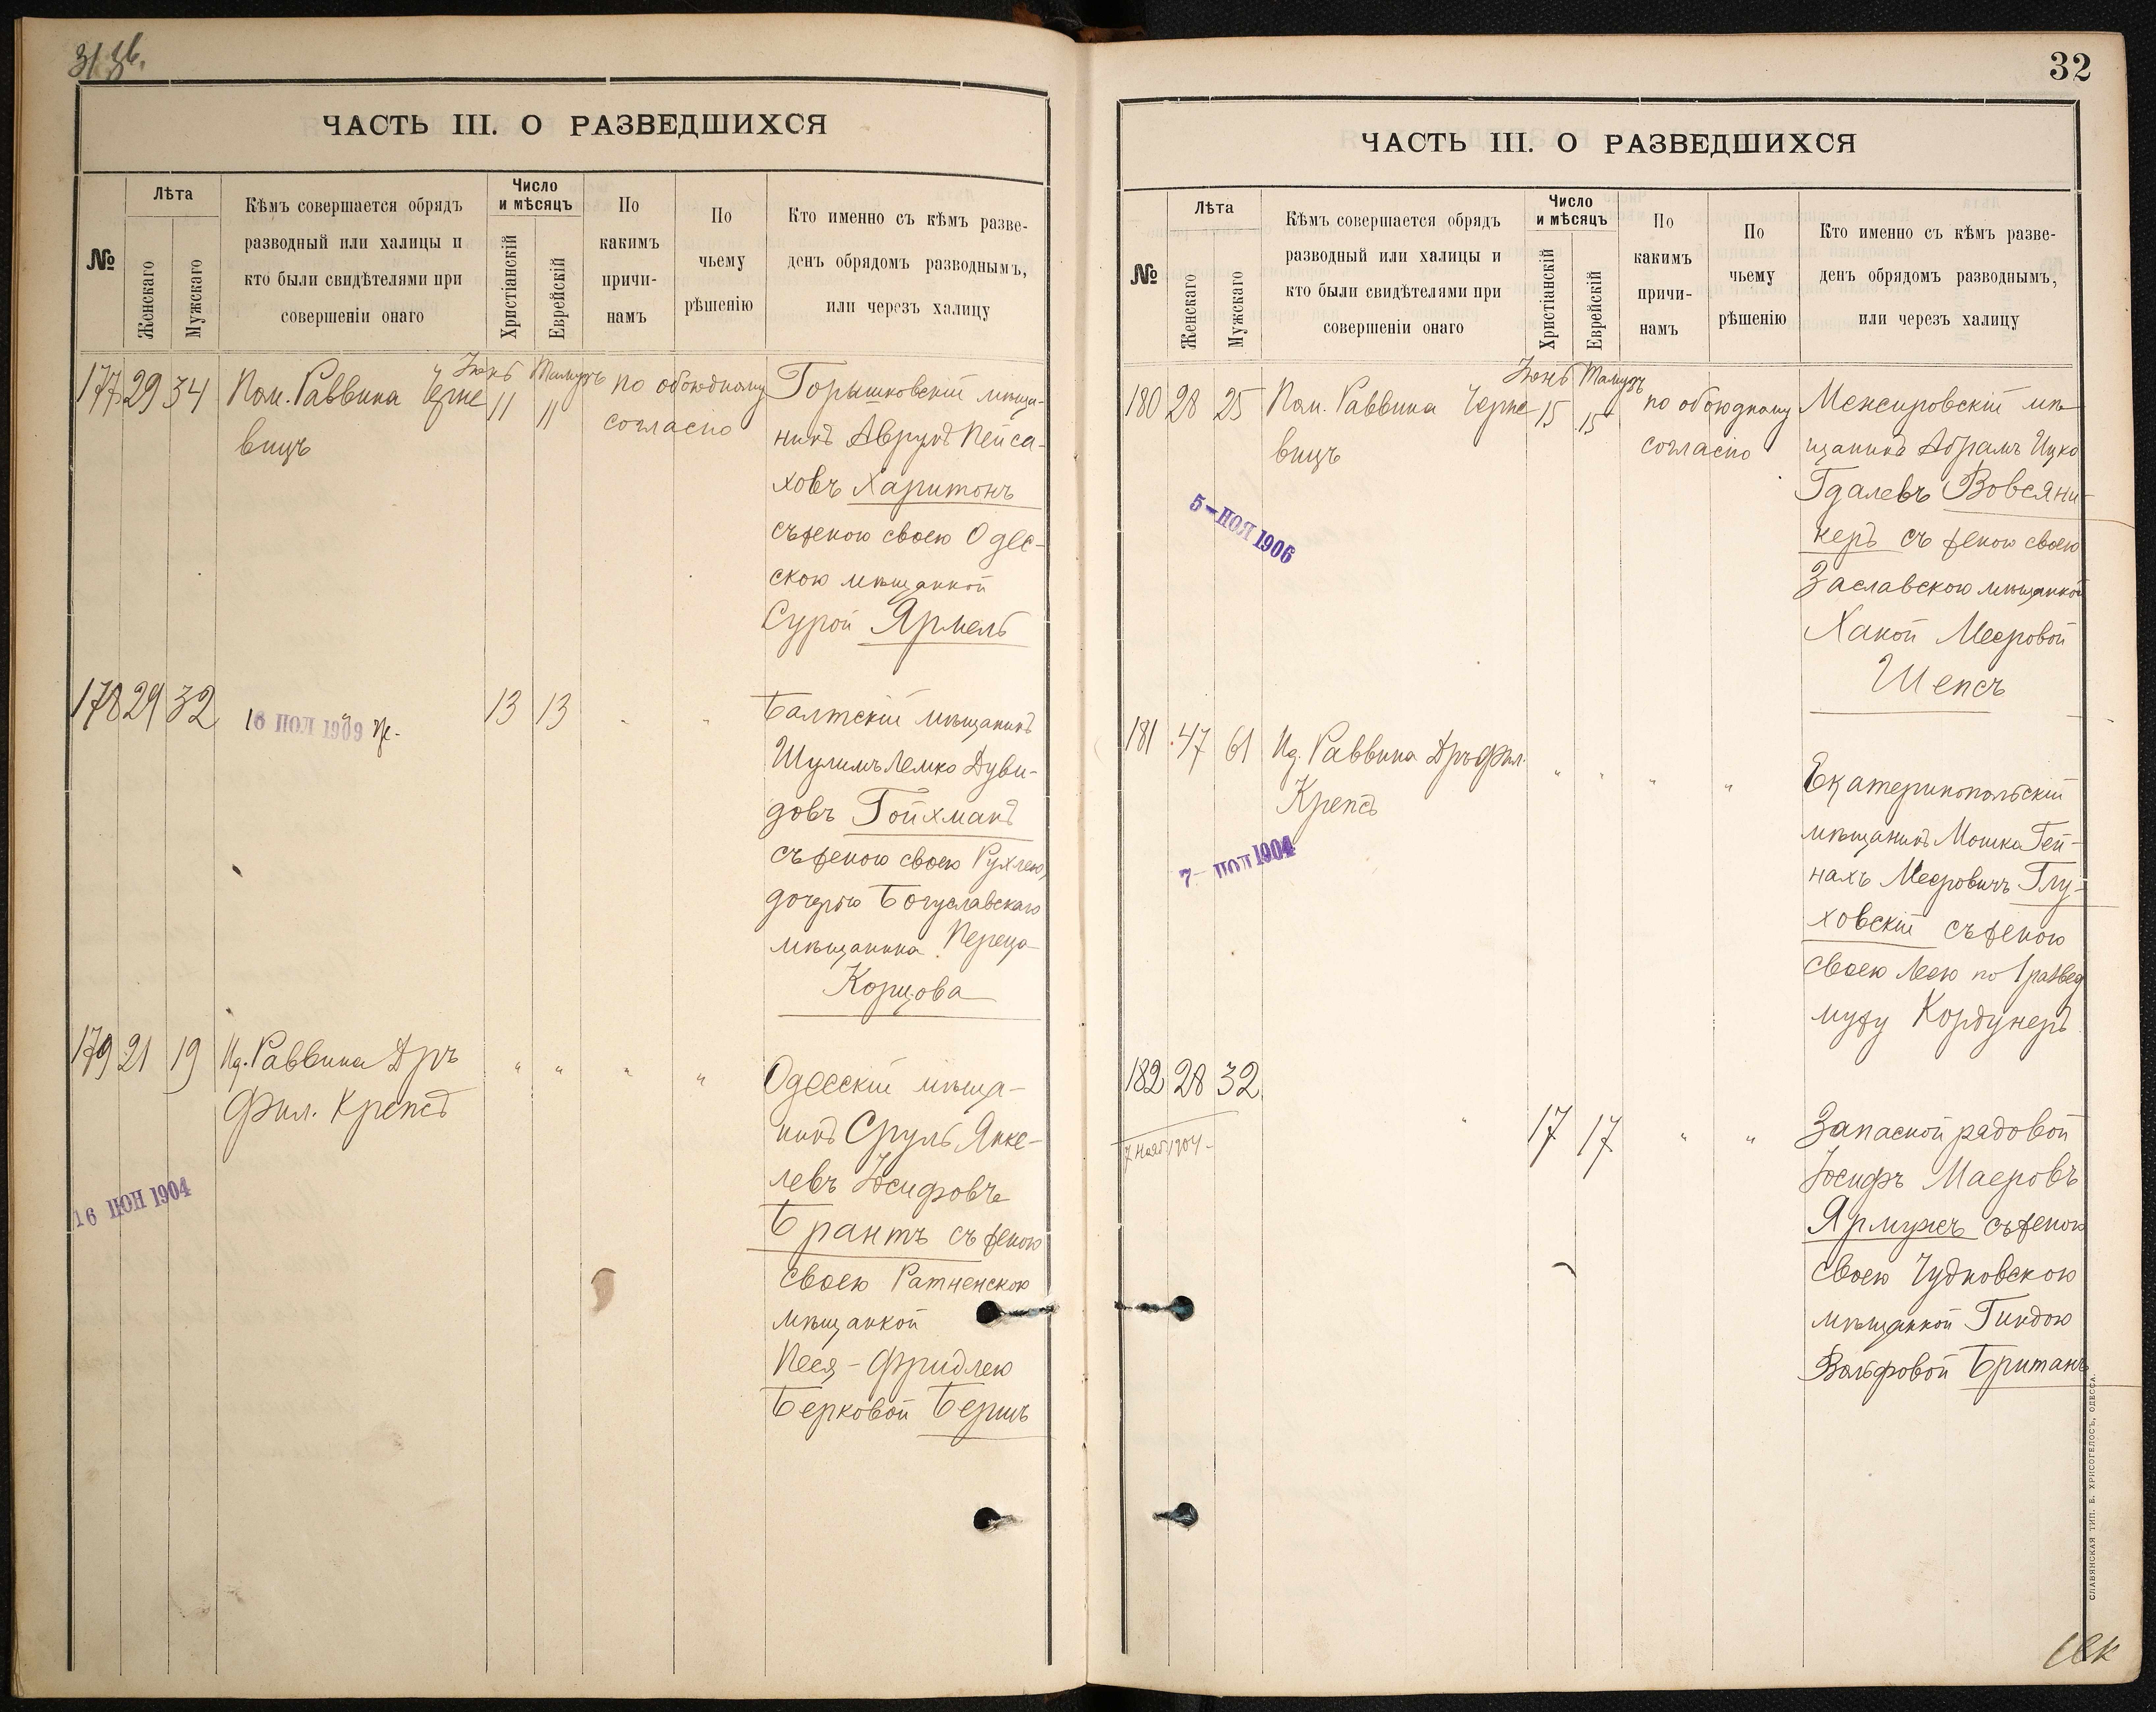 31 зв.
ЧАСТЬ III. О РАЗВЕДШИХСЯ
№
Лѣта
Женскаго
Мужскаго
Кѣмъ совершается обрядъ
разводный или халицы и
кто были свидѣтелями при
совершеніи онаго
Число
и мѣсяцъ
Христіанскій
Еврейскій
По
какимъ
причи-
намъ
По
чьему
рѣшенію
Кто именно съ кѣмъ разве-
денъ обрядомъ разводнымъ,
или черезъ халицу
177 29 34 Пом. Раввина Черне
вицъ
Іюнь Тамузъ
11 11
по обоюдному
согласію
Горышковскій мѣща-
нинъ Аврумъ Пейса-
ховъ Харитонъ
съ женою своею Одес-
скою мѣщанкой
Сурой Ярмель
178 29 32
13 13
Балтскій мѣщанинъ
Шулимъ Лемко Дуви-
довъ Гойхманъ
съ женою своею Рухлею,
дочерью Богуславскаго
мѣщанина Переца
Корцова
179 21 19 Ид. Раввина Дръ
Фил. Крепсъ
" " " "
16 ІЮН 1904
Одесскій мѣща-
нинъ Сруль Янке-
левъ Іосифовъ
Брантъ съ женою
своею Ратненскою
мѣщанкой
Песя-Фридлею
Берковой Беришъ
32
ЧАСТЬ III. О РАЗВЕДШИХСЯ
№
Лѣта
Женскаго
Мужскаго
Кѣмъ совершается обрядъ
разводный или халицы и
кто были свидѣтелями при
совершеніи онаго
Число
и мѣсяцъ
Христіанскій
Еврейскій
По
какимъ
причи-
намъ
По
чьему
рѣшенію
Кто именно съ кѣмъ разве-
денъ обрядомъ разводнымъ,
или черезъ халицу
180 28 25 Пом. Раввина Черне
вицъ
Іюнь Тамузъ
15 15
по обоюдному
согласію
5 - НОЯ 1906
Межировскій мѣ-
щанинъ Абрамъ Ицко
Гдалевъ Вовсяни-
керъ съ женою своею
Заславскою мѣщанкой
Ханой Мееровой
Шепсъ
181 47 61 Ид. Раввина Дръ Фил.
Крепсъ
" " " "
1904
Екатеринопольскій
мѣщанинъ Мошка Гей-
нахъ Мееровичъ Глу-
ховскій съ женою
своею Леею по 1 развед
мужу Кордунеръ
182 28 32
"
17 17
" "
7 нояб. 1904
Запасной рядовой
Іосифъ Маеровъ
Ярмужъ съ женою
своею Чудновскою
мѣщанкой Гиндою
Вольфовой Британъ
СЛАВЯНСКАЯ ТИП. Е. ХРИСОГЕЛОСЪ, ОДЕССА.